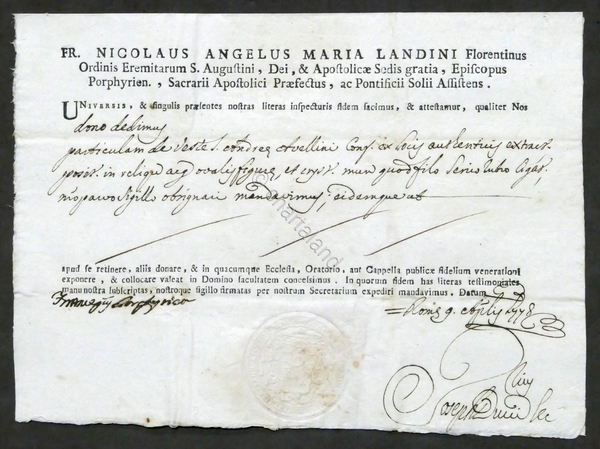 FR. NICOLAUS ANGELUS MARIA LANDINI Florentinus
Ordinis Eremitarum S. Augustini, Dei, & Apostolicæ Sedis gratia, Episcopus
Porphyrien., Sacrarii Apostolici Præfectus, ac Pontificii Solii Assistens.
UNIVERSIS, & singulis præsentes nostras literas inspecturis fidem facimus, & attestamur, qualiter Nos
dono dedimus
particulam de Veste S. Andreæ Avellini Conf. ex Locis authenticis extract.
posit. in reliq. aeg ovalis figuræ, et cryst. mun quod filo Serico rubro ligat.
nroparvo Sigillo obsignari mandavimus; eidemque ut
apud se retinere, aliis donare, & in quacumque Ecclesia, Oratorio, aut Cappella publicæ fidelium venerationi
exponere, & collocare valeat in Domino facultatem concessimus. In quorum fidem has literas testimoniales
manu nostra subscriptas, nostroque sigillo firmatas per nostrum Secretarium expediri mandavimus. Datum
Romæ 9. Aplis 1778
Joseph
© chartaland